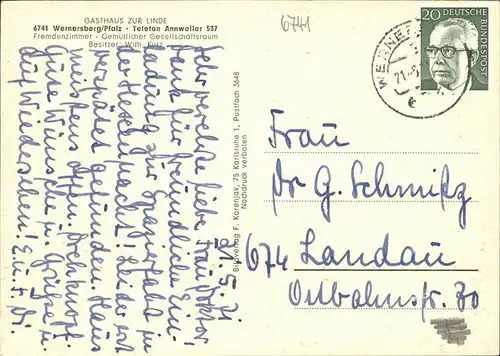 GASTHAUS ZUR LINDE
6741 Wernersberg/Pfalz - Telefon Annweiler 537
Fremdenzimmer - Gemütlicher Gesellschaftsraum
Besitzer: Wilh. Kurz
6741
20 DEUTSCHE
BUNDESPOST
WERNER
21.-6
Sehr verehrte, liebe Frau Doktor!
Dank für freundliche Ein-
ladung zur Spazierfahrt in
der Leider erst
verspätet gefunden. Haus
meistens offen.
Gute Wünsche u. Grüße u.
auf Wiedersehen! E. u.
5. 71
Bildverlag F. Korenjak, 75 Karlsruhe 1, Postfach 3648
Nachdruck verboten
Frau
Dr G. Schmitz
674 Landau
Ostbahnstr. 30